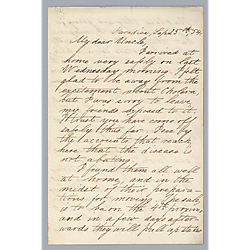 Paradise, Sept 5th /54.
My dear Uncle,
I arrived at
home very safely on last
Wednesday morning. I felt
glad to be away from the
excitement about Cholera
but I was sorry to leave
my friends exposed to it.
I trust you have come off
safely thus far. I see by
the accounts that reach
here that the disease is
not abating.
I found them all well
at home, and in the
midst of their prepara-
tions for moving. Speak
is to be on the
and in a few days after-
wards they will pull up stakes